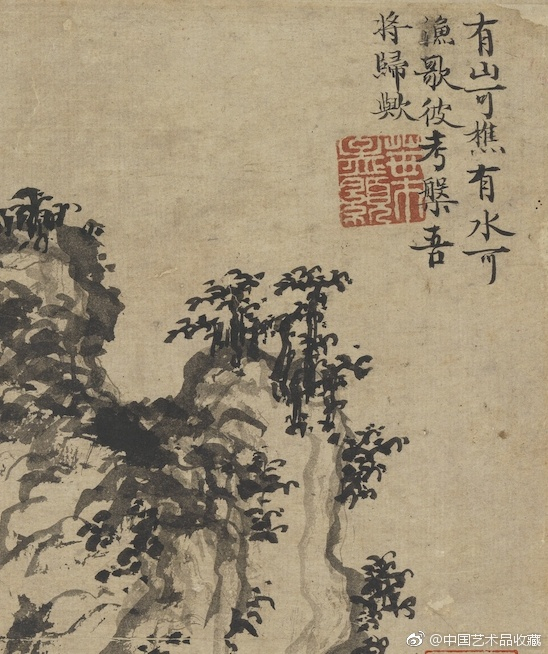 有山可樵有水可
漁歌彼考槃吾
將歸歟
@中国艺术品收藏